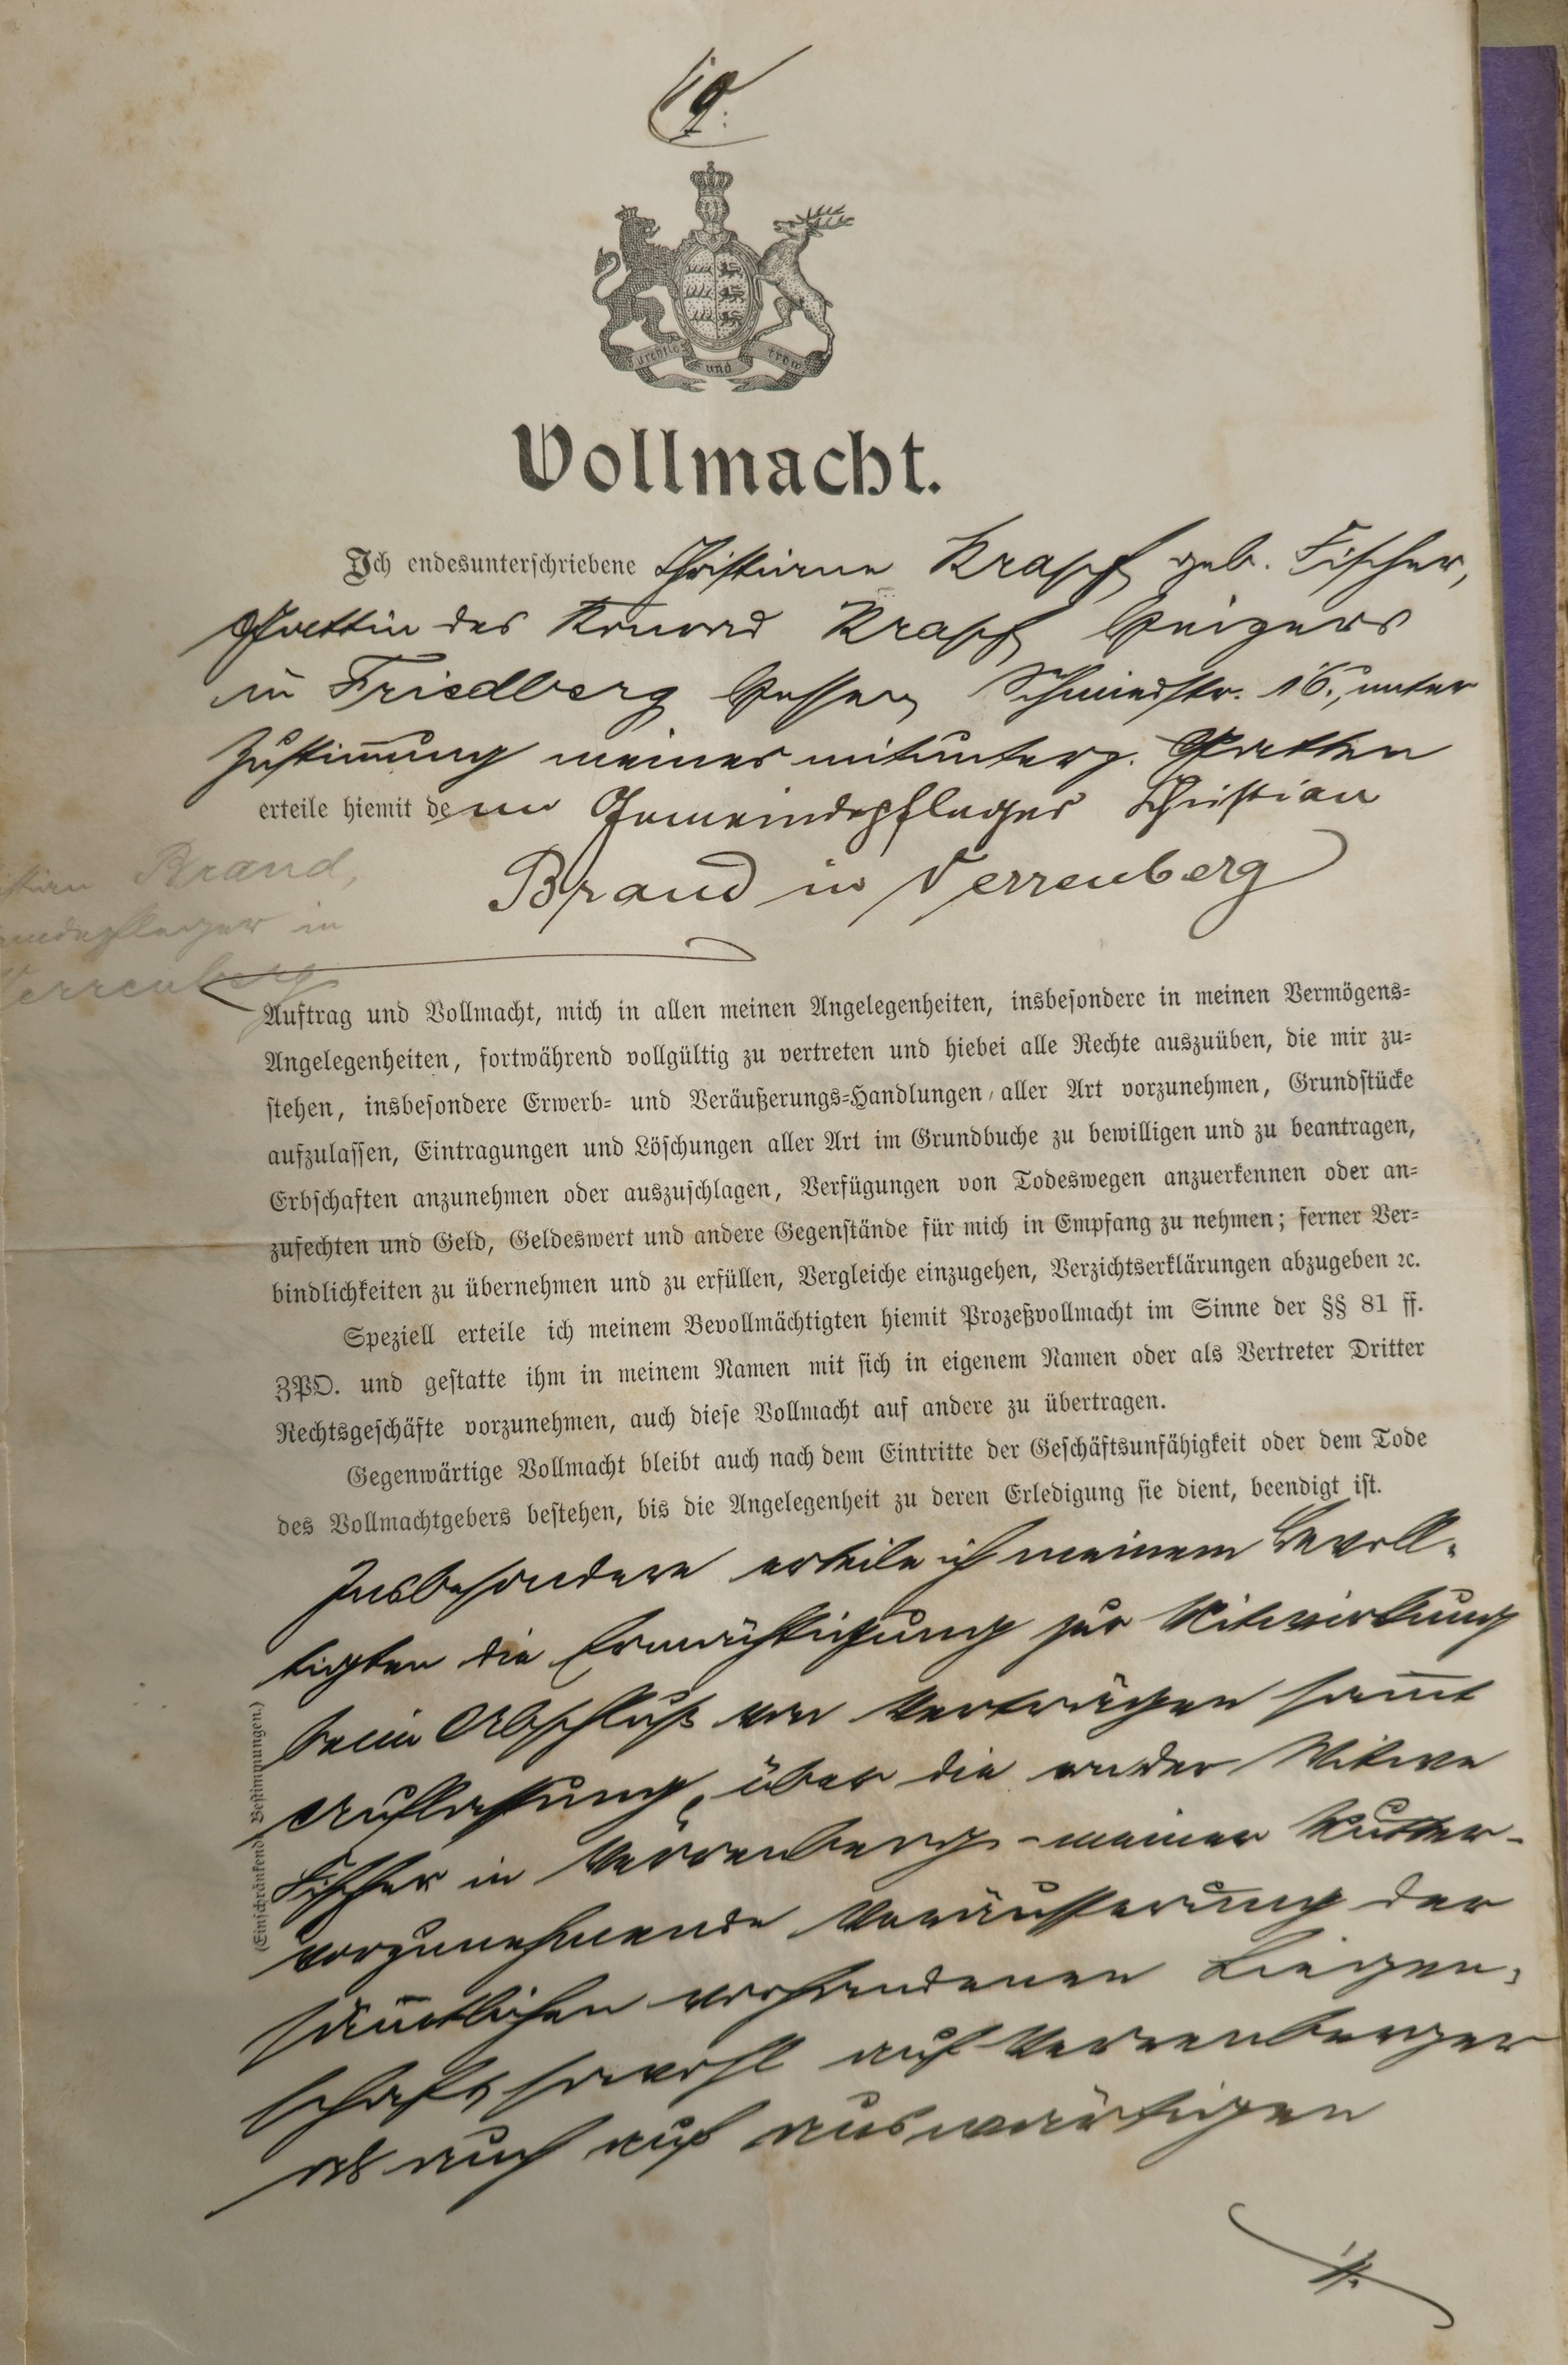 19.
Furchtlos und trew
Vollmacht.
Ich endesunterschriebene Christiane Krapf geb. Fischer,
Gattin des Konrad Krapf
in Friedberg Hessen, Schmiedstr. 16, unter
Zustimmung meines mitunterz. Gatten
erteile hiemit dem Gemeindepfleger Christian
Brand in Verrenberg
Brand,
in
Verrenberg
Auftrag und Vollmacht, mich in allen meinen Angelegenheiten, insbesondere in meinen Vermögens-
Angelegenheiten, fortwährend vollgültig zu vertreten und hiebei alle Rechte auszuüben, die mir zu-
stehen, insbesondere Erwerb- und Veräußerungs-Handlungen aller Art vorzunehmen, Grundstücke
aufzulassen, Eintragungen und Löschungen aller Art im Grundbuche zu bewilligen und zu beantragen,
Erbschaften anzunehmen oder auszuschlagen, Verfügungen von Todeswegen anzuerkennen oder an-
zufechten und Geld, Geldeswert und andere Gegenstände für mich in Empfang zu nehmen; ferner Ver-
bindlichkeiten zu übernehmen und zu erfüllen, Vergleiche einzugehen, Verzichtserklärungen abzugeben ꝛc.
Speziell erteile ich meinem Bevollmächtigten hiemit Prozeßvollmacht im Sinne der §§ 81 ff.
ZPO. und gestatte ihm in meinem Namen mit sich in eigenem Namen oder als Vertreter Dritter
Rechtsgeschäfte vorzunehmen, auch diese Vollmacht auf andere zu übertragen.
Gegenwärtige Vollmacht bleibt auch nach dem Eintritte der Geschäftsunfähigkeit oder dem Tode
des Vollmachtgebers bestehen, bis die Angelegenheit zu deren Erledigung sie dient, beendigt ist.
(Einschränkende Bestimmungen.)
Insbesondere erteile ich meinem Bevoll-
tigten die Ermächtigung zur Mitwirkung
beim Abschluß von Verträgen samt
Auflassung, über die von der Witwe
Fischer in Verrenberg - meiner Mutter -
vorzunehmende Veräusserung der
sämtlichen vorhandenen Liegen-
schaft, sowohl auf Verrenberger
als auch auf auswärtigen